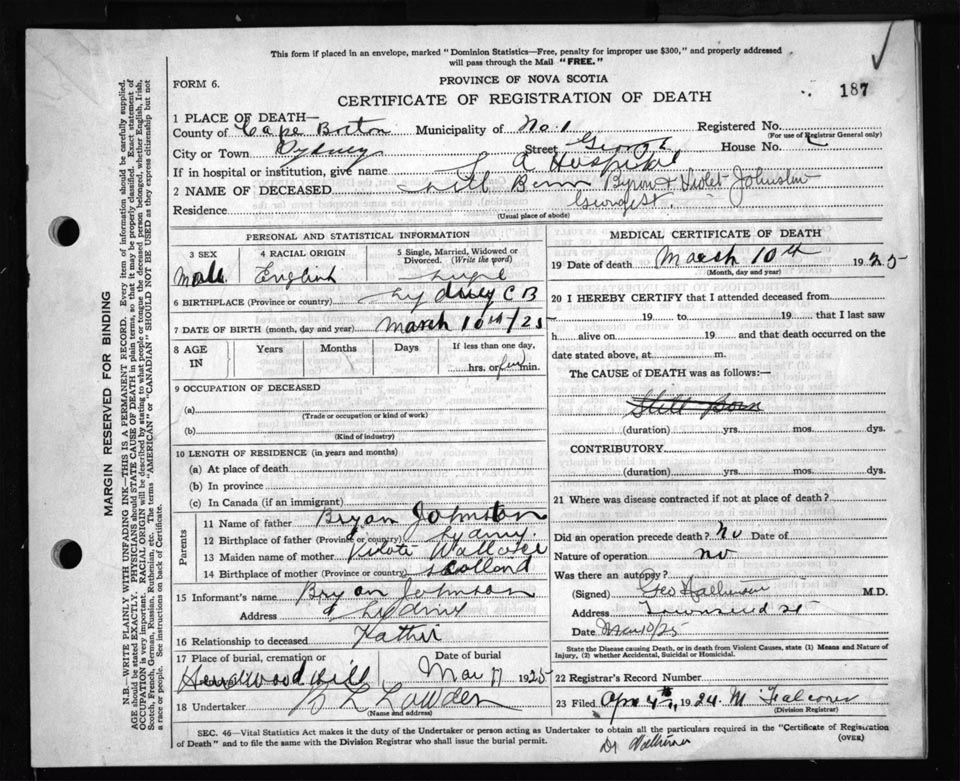 This form if placed in an envelope, marked "Dominion Statistics—Free, penalty for improper use $300," and properly addressed
will pass through the Mail "FREE."
FORM 6.
PROVINCE OF NOVA SCOTIA
187
CERTIFICATE OF REGISTRATION OF DEATH
1 PLACE OF DEATH—
County of Cape Breton Municipality of No. 1 Registered No.
(For use of Registrar General only)
City or Town Sydney Street George House No.
If in hospital or institution, give name Hospital
2 NAME OF DECEASED Still Born Byron & Violet Johnston
Residence George St.
(Usual place of abode)
PERSONAL AND STATISTICAL INFORMATION
3 SEX 4 RACIAL ORIGIN 5 Single, Married, Widowed or Divorced. (Write the word)
Male English Single
6 BIRTHPLACE (Province or country) Sydney C B
7 DATE OF BIRTH (month, day and year) March 10th/25
8 AGE IN Years Months Days If less than one day,
hrs. or few min.
9 OCCUPATION OF DECEASED
(a)
(Trade or occupation or kind of work)
(b)
(Kind of industry)
10 LENGTH OF RESIDENCE (in years and months)
(a) At place of death
(b) In province
(c) In Canada (if an immigrant)
Parents
11 Name of father Bryan Johnston
12 Birthplace of father (Province or country) Sydney
13 Maiden name of mother Violet Wallace
14 Birthplace of mother (Province or country) Scotland
15 Informant's name Bryan Johnston
Address Sydney
16 Relationship to deceased Father
17 Place of burial, cremation or Date of burial
Hardwood Hill Mar 11 1925
18 Undertaker Lowden
(Name and address)
MEDICAL CERTIFICATE OF DEATH
19 Date of death March 10th 1925
(Month, day and year)
20 I HEREBY CERTIFY that I attended deceased from
19 to 19 that I last saw
h alive on 19 and that death occurred on the
date stated above, at m.
The CAUSE of DEATH was as follows:—
Still Born
(duration) yrs. mos. dys.
CONTRIBUTORY.
(duration) yrs. mos. dys.
21 Where was disease contracted if not at place of death?
Did an operation precede death? no Date of
Nature of operation no
Was there an autopsy?
(Signed) Geo M.D.
Address Townsend St
Date Mar 10/25
State the Disease causing Death, or in death from Violent Causes, state (1) Means and Nature of
Injury, (2) whether Accidental, Suicidal or Homicidal.
22 Registrar's Record Number
23 Filed Apr 4th, 1924. M Falconer
(Division Registrar)
SEC. 46—Vital Statistics Act makes it the duty of the Undertaker or person acting as Undertaker to obtain all the particulars required in the "Certificate of Registration
of Death" and to file the same with the Division Registrar who shall issue the burial permit. (OVER)
Dr
MARGIN RESERVED FOR BINDING
N.B.—WRITE PLAINLY WITH UNFADING INK—THIS IS A PERMANENT RECORD. Every item of information should be carefully supplied.
AGE should be stated EXACTLY. PHYSICIANS should STATE CAUSE OF DEATH in plain terms, so that it may be properly classified. Exact statement of
OCCUPATION is very important. RACIAL ORIGIN will be described by stating to what people or tongue the deceased person belonged, whether English, Irish,
Scotch, French, German, Russian, Ruthenian, etc. The terms "AMERICAN" or "CANADIAN" SHOULD NOT BE USED as they express citizenship but not
a race or people. See instructions on back of Certificate.